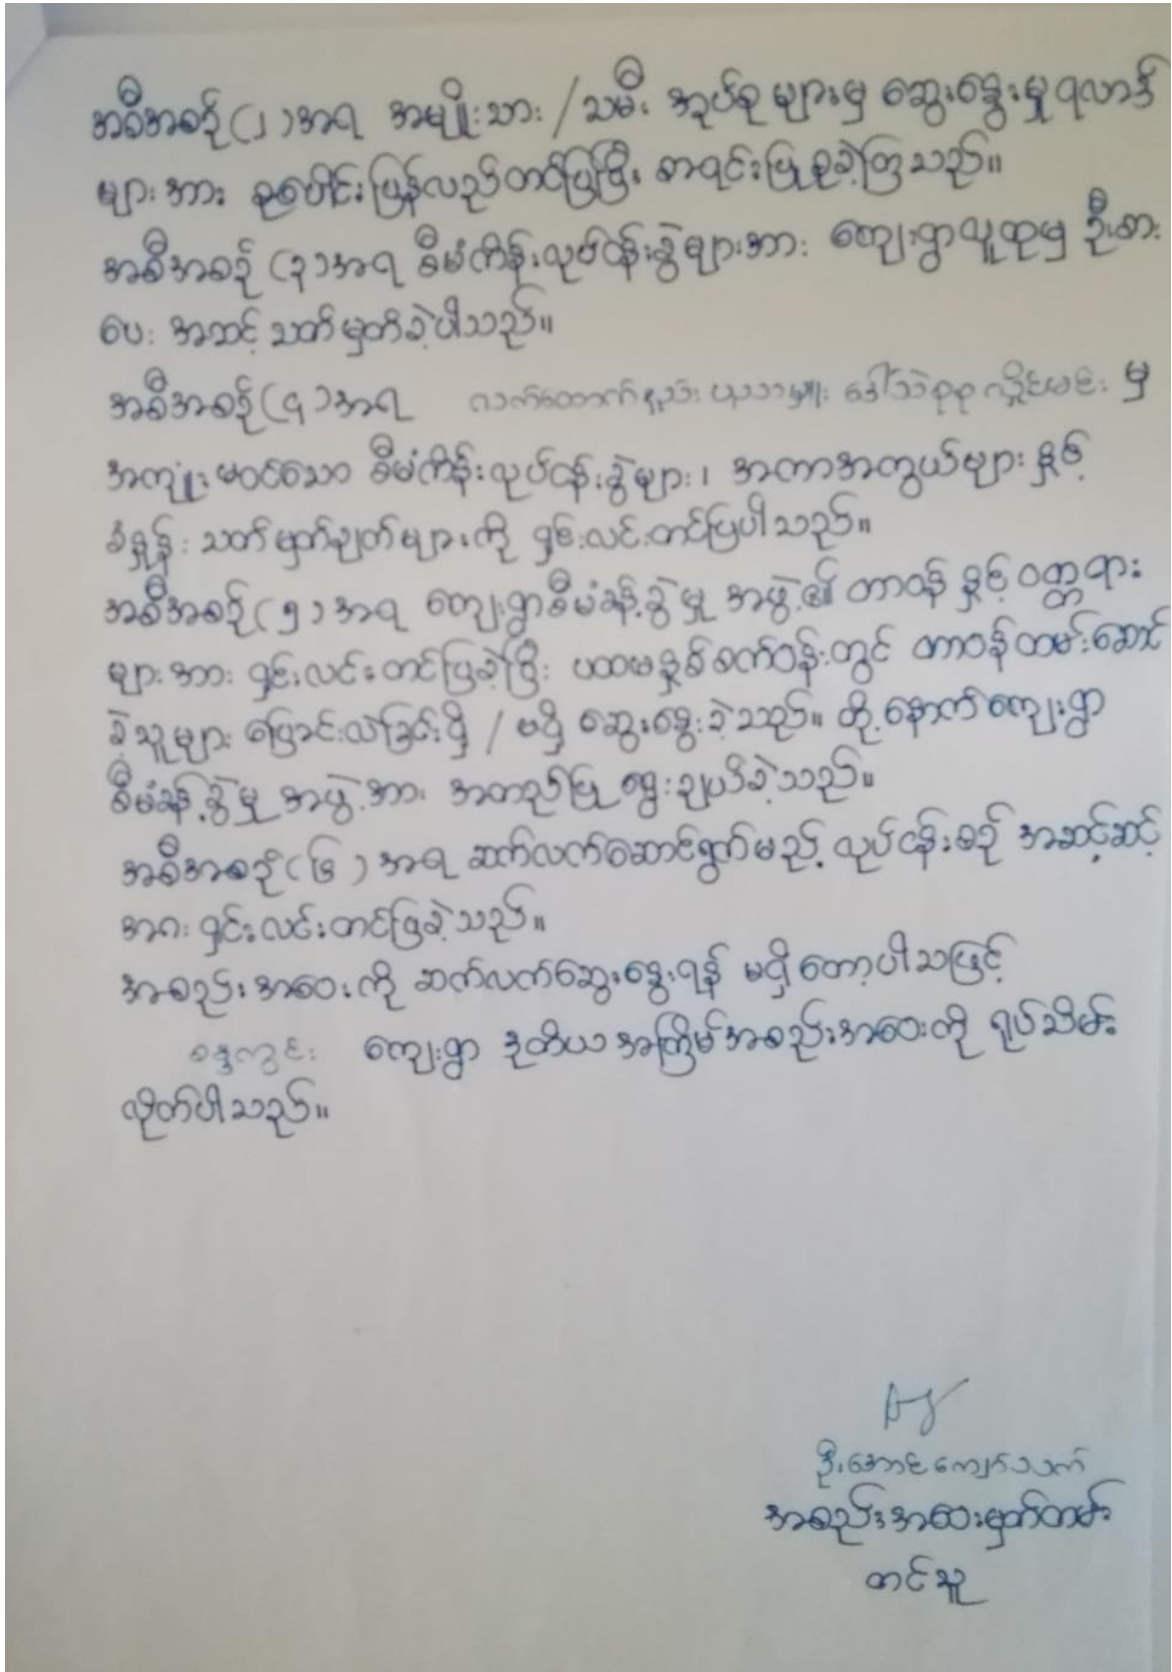 အစီအစဉ်(၂)အရ အမျိုးသား/သမီး အုပ်စုများမှ ဆွေးနွေးမှုရလာဒ်
များအား စုပေါင်းပြန်လည်တင်ပြပြီး စာရင်းပြုစုခဲ့ကြသည်။
အစီအစဉ်(၃)အရ စီမံကိန်းလုပ်ငန်းခွဲများအား ကျေးရွာလူထုမှ ဦးစား
ပေး အဆင့် သတ်မှတ်ခဲ့ပါသည်။
အစီအစဉ်(၄)အရ လက်ထောက်နည်းပညာမှူး ဒေါ်သဲစုစုလှိုင်မင်း မှ
အကျုံးမဝင်သော စီမံကိန်းလုပ်ငန်းခွဲများ၊ အကာအကွယ်များ နှင့်
စံနှုန်း သတ်မှတ်ချက်များကို ရှင်းလင်းတင်ပြပါသည်။
အစီအစဉ်(၅)အရ ကျေးရွာစီမံခန့်ခွဲမှု အဖွဲ့၏ တာဝန် နှင့် ဝတ္တရား
များအား ရှင်းလင်းတင်ပြခဲ့ပြီး ပထမနှစ်စက်ဝန်းတွင် တာဝန်ထမ်းဆောင်
ခဲ့သူများ ပြောင်းလဲခြင်းရှိ / မရှိ ဆွေးနွေးခဲ့သည်။ ထို့နောက် ကျေးရွာ
စီမံခန့်ခွဲမှု အဖွဲ့အား အတည်ပြု ရွေးချယ်ခဲ့သည်။
အစီအစဉ်(၆)အရ ဆက်လက်ဆောင်ရွက်မည့် လုပ်ငန်းစဉ် အဆင့်ဆင့်
အား ရှင်းလင်းတင်ပြခဲ့သည်။
အစည်းအဝေးကို ဆက်လက်ဆွေးနွေးရန် မရှိတော့ပါသဖြင့်
ကျေးရွာ ဒုတိယအကြိမ်အစည်းအဝေးကို ရုပ်သိမ်း
လိုက်ပါသည်။
ဦးအောင်ကျော်သက်
အစည်းအဝေးမှတ်တမ်း
တင်သူ